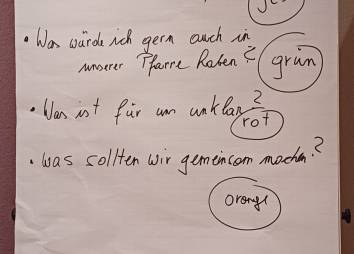 • Was würde ich gern auch in
unserer Pfarre haben? grün
• Was ist für uns unklar?
rot
• was sollten wir gemeinsam machen?
orange